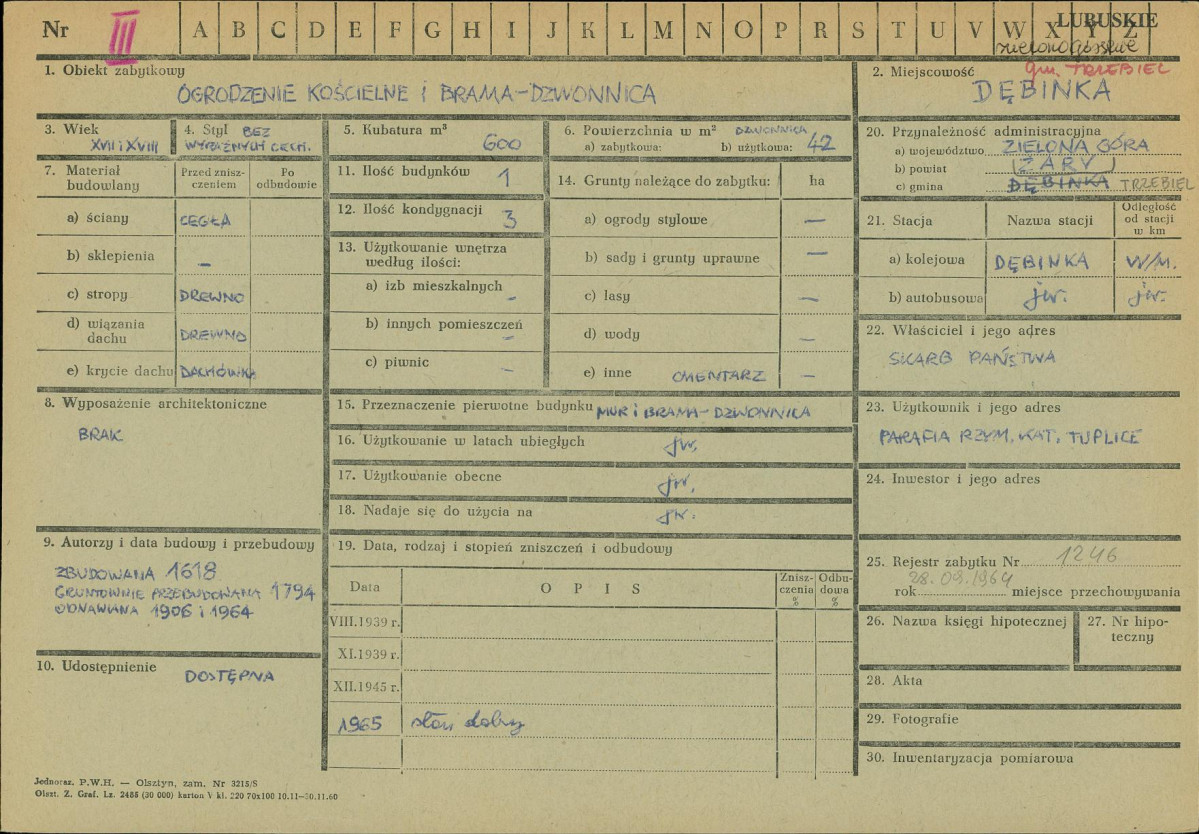 Nr III A B C D E F G H I J K L M N O P R S T U V W X Y Z
LUBUSKIE
zielonogórskie
1. Obiekt zabytkowy
OGRODZENIE KOŚCIELNE i BRAMA-DZWONNICA
2. Miejscowość
gm. TRZEBIEL
DĘBINKA
3. Wiek
XVII i XVIII
4. Styl BEZ
WYRAŹNYCH CECH.
5. Kubatura m³
600
6. Powierzchnia w m² DZWONNICA
a) zabytkowa: b) użytkowa: 42
7. Materiał budowlany
Przed zniszczeniem
Po odbudowie
a) ściany CEGŁA
b) sklepienia –
c) stropy DREWNO
d) wiązania dachu DREWNO
e) krycie dachu DACHÓWKA
8. Wyposażenie architektoniczne
BRAK
9. Autorzy i data budowy i przebudowy
ZBUDOWANA 1618
GRUNTOWNIE PRZEBUDOWANA 1794
ODNAWIANA 1906 i 1964
10. Udostępnienie
DOSTĘPNA
11. Ilość budynków 1
12. Ilość kondygnacji 3
13. Użytkowanie wnętrza
według ilości:
a) izb mieszkalnych –
b) innych pomieszczeń –
c) piwnic –
14. Grunty należące do zabytku: ha
a) ogrody stylowe –
b) sady i grunty uprawne –
c) lasy –
d) wody –
e) inne CMENTARZ –
15. Przeznaczenie pierwotne budynku MUR i BRAMA-DZWONNICA
16. Użytkowanie w latach ubiegłych jw.
17. Użytkowanie obecne jw.
18. Nadaje się do użycia na jw.
19. Data, rodzaj i stopień zniszczeń i odbudowy
Data
O P I S
Zniszczenia %
Odbudowa %
VIII.1939 r.
XI.1939 r.
XII.1945 r.
1965 stan dobry
20. Przynależność administracyjna
a) województwo ZIELONA GÓRA
b) powiat ŻARY
c) gmina DĘBINKA TRZEBIEL
21. Stacja
Nazwa stacji
Odległość od stacji w km
a) kolejowa DĘBINKA W/M.
b) autobusowa jw. jw.
22. Właściciel i jego adres
SKARB PAŃSTWA
23. Użytkownik i jego adres
PARAFIA RZYM. KAT. TUPLICE
24. Inwestor i jego adres
25. Rejestr zabytku Nr 1246
28.09.1964
rok miejsce przechowywania
26. Nazwa księgi hipotecznej
27. Nr hipoteczny
28. Akta
29. Fotografie
30. Inwentaryzacja pomiarowa
Jednoraz. P.W.H. — Olsztyn, zam. Nr 3215/S
Olszt. Z. Graf. Lz. 2485 (30 000) karton V kl. 220 70x100 10.11—30.11.60